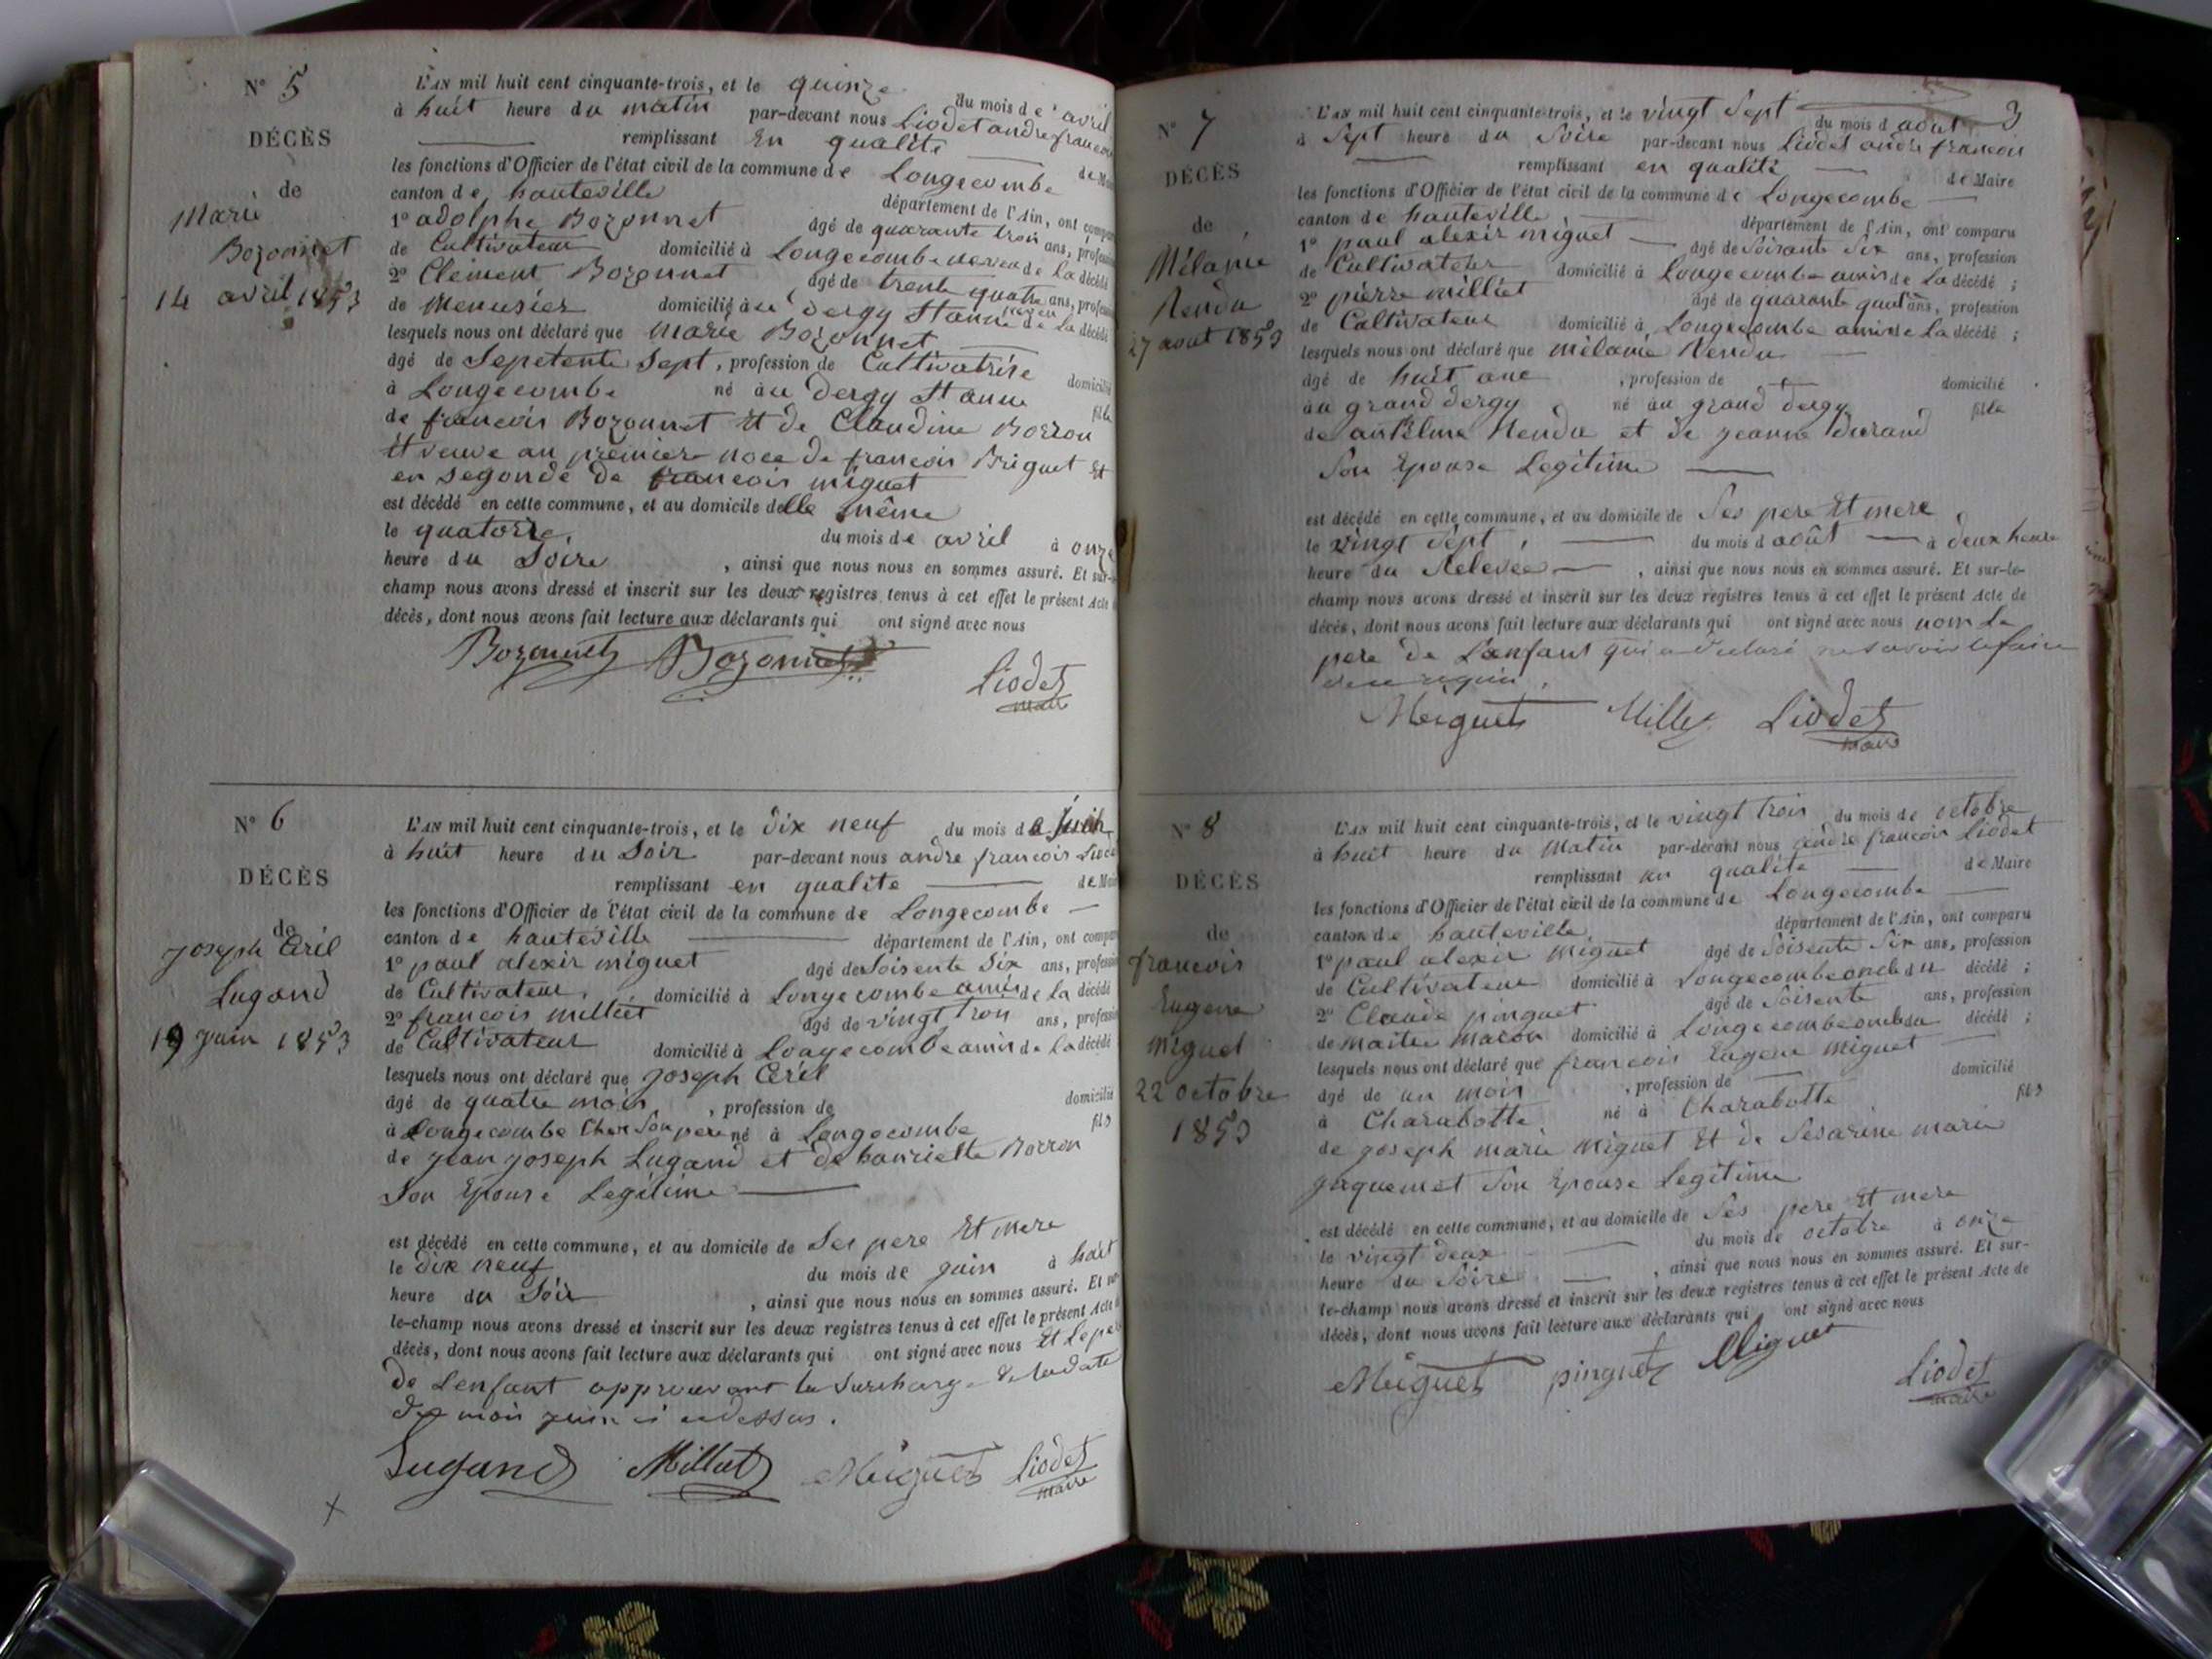 N° 5
DÉCÈS
de
Marie
Bozonnet
14 avril 1853
L'AN mil huit cent cinquante-trois, et le quinze du mois de avril
à huit heure du matin par-devant nous Liodet andre francoi
remplissant En qualite de Mai
les fonctions d'Officier de l'état civil de la commune de Longecombe
canton de hauteville département de l'Ain, ont compar
1° adolphe Bozonnet âgé de quarante trois ans, profession
de Cultivateur domicilié à Longecombe neveu de la décédé
2° Clément Bozonnet âgé de trente quatre ans, profess
de Menusier domicilié à au dergy Stanne neveu de la décédé
lesquels nous ont déclaré que Marie Bozonnet
âgé de Sepetente Sept, profession de Cultivatrise domicilié
à Longecombe né au Dergy Stanne fille
de francois Bozonnet Et de Claudine Borron
Et veuve au premiere noce de francois Briguet Et
en segonde de francois miguet
est décédé en cette commune, et au domicile delle même
le quatorze du mois de avril à onze
heure du Soire, ainsi que nous nous en sommes assuré. Et sur-
champ nous avons dressé et inscrit sur les deux registres tenus à cet effet le présent Acte
décès, dont nous avons fait lecture aux déclarants qui ont signé avec nous
Bozonnet Bozonnet
Liodet
maire
N° 6
DÉCÈS
de
Joseph Ceril
Lugand
19 juin 1853
L'AN mil huit cent cinquante-trois, et le dix neuf du mois de Juin
à huit heure du Soir par-devant nous andre francois Liod
remplissant en qualite de Mai
les fonctions d'Officier de l'état civil de la commune de Longecombe
canton de hauteville département de l'Ain, ont compar
1° paul alexis miguet âgé de Soisente Six ans, profession
de Cultivateur, domicilié à Longecombe amis de la décédé
2° francois milliet âgé de vingt trois ans, profession
de Cultivateur domicilié à Longecombe amis de la décédé
lesquels nous ont déclaré que Joseph Ceril
âgé de quatre mois, profession de domicilié
à Longecombe Cher Son pere né à Longecombe fils
de jean joseph Lugand et de hanriette Borron
Son Epouse Legitime
est décédé en cette commune, et au domicile de Ses pere Et mere
le dix neuf du mois de juin à huit
heure du Soir, ainsi que nous nous en sommes assuré. Et sur
le-champ nous avons dressé et inscrit sur les deux registres tenus à cet effet le présent Acte
décès, dont nous avons fait lecture aux déclarants qui ont signé avec nous Et Le pe
de Lenfant approuvant la Surcharge de la date
de mois juin ci dessus.
Lugand Milliet Miguet Liodet
maire
3
N° 7
DÉCÈS
de
Mélanie
Nendu
27 aout 1853
L'AN mil huit cent cinquante-trois, et le vingt Sept du mois d aout
à Sept heure du Soire par-devant nous Liodet andre francois
remplissant en qualite de Maire
les fonctions d'Officier de l'état civil de la commune de Longecombe
canton de hauteville département de l'Ain, ont comparu
1° paul alexis miguet âgé de Soisante Six ans, profession
de Cultivateur domicilié à Longecombe amis de La décédé ;
2° pierre milliet âgé de quarante quat ans, profession
de Cultivateur domicilié à Longecombe amis de La décédé ;
lesquels nous ont déclaré que mélanie Nendu
âgé de huit ane, profession de domicilié
au grand dergy né au grand dergy fille
de anselme Nendu et de jeanne durand
Son Epouse Legitime
est décédé en cette commune, et au domicile de Ses pere Et mere
le vingt Sept du mois d août à deux heure
heure du Relevée, ainsi que nous nous en sommes assuré. Et sur-le-
champ nous avons dressé et inscrit sur les deux registres tenus à cet effet le présent Acte de
décès, dont nous avons fait lecture aux déclarants qui ont signé avec nous nom Le
pere de Lenfant qui a declaré ne savoir le faire
de ce requis.
Miguet Milliet Liodet
maire
N° 8
DÉCÈS
de
francois
Eugene
Miguet
22 octobre
1853
L'AN mil huit cent cinquante-trois, et le vingt trois du mois de octobre
à huit heure du Matin par-devant nous andre francois Liodet
remplissant en qualite de Maire
les fonctions d'Officier de l'état civil de la commune de Longecombe
canton de hauteville département de l'Ain, ont comparu
1° paul alexis Miguet âgé de Soisente Six ans, profession
de Cultivateur domicilié à Longecombe oncle du décédé ;
2° Claude pinguet âgé de Soisente ans, profession
de Maitre macon domicilié à Longecombe oncle du décédé ;
lesquels nous ont déclaré que francois Eugene Miguet
âgé de un mois, profession de domicilié
à Charabotte né à Charabotte fils
de joseph marie Miguet Et de Sesarine marie
jaquemet Son Epouse Legitime
est décédé en cette commune, et au domicile de Ses pere Et mere
le vingt deux du mois de octobre à onze
heure du Soire, ainsi que nous nous en sommes assuré. Et sur-
le-champ nous avons dressé et inscrit sur les deux registres tenus à cet effet le présent Acte de
décès, dont nous avons fait lecture aux déclarants qui ont signé avec nous
Miguet pinguet Miguet
Liodet
maire